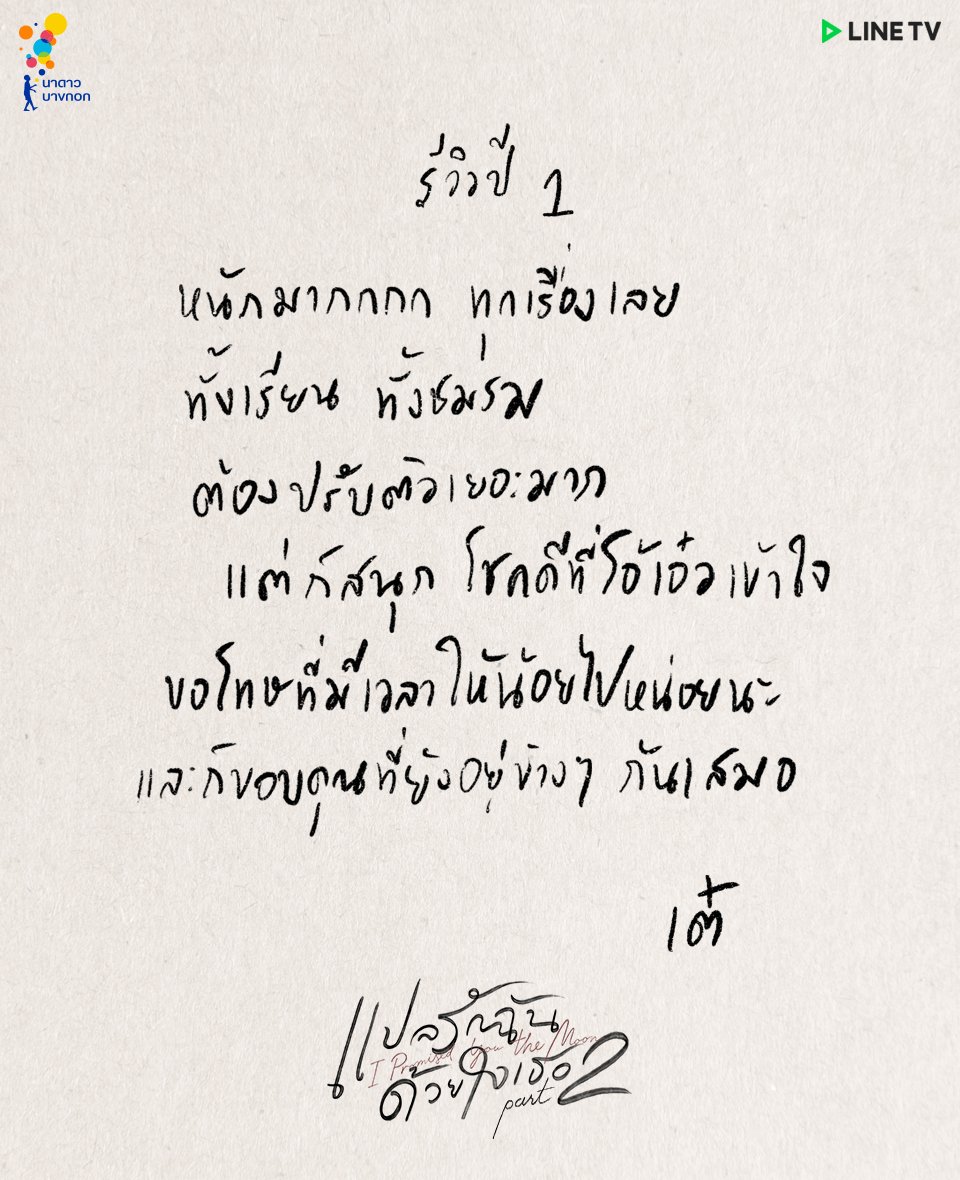 นาดาว
บางกอก
LINE TV
รีวิวปี 1
หนักมากกกก ทุกเรื่องเลย
ทั้งเรียน ทั้งชมรม
ต้องปรับตัวเยอะมาก
แต่ก็สนุก โชคดีที่โอ้เอ๋วเข้าใจ
ขอโทษที่มีเวลาให้น้อยไปหน่อยนะ
และก็ขอบคุณที่ยังอยู่ข้างๆ กันเสมอ
เต๋
แปลรักฉัน
I Promised You the Moon
ด้วยใจเธอ 2
part